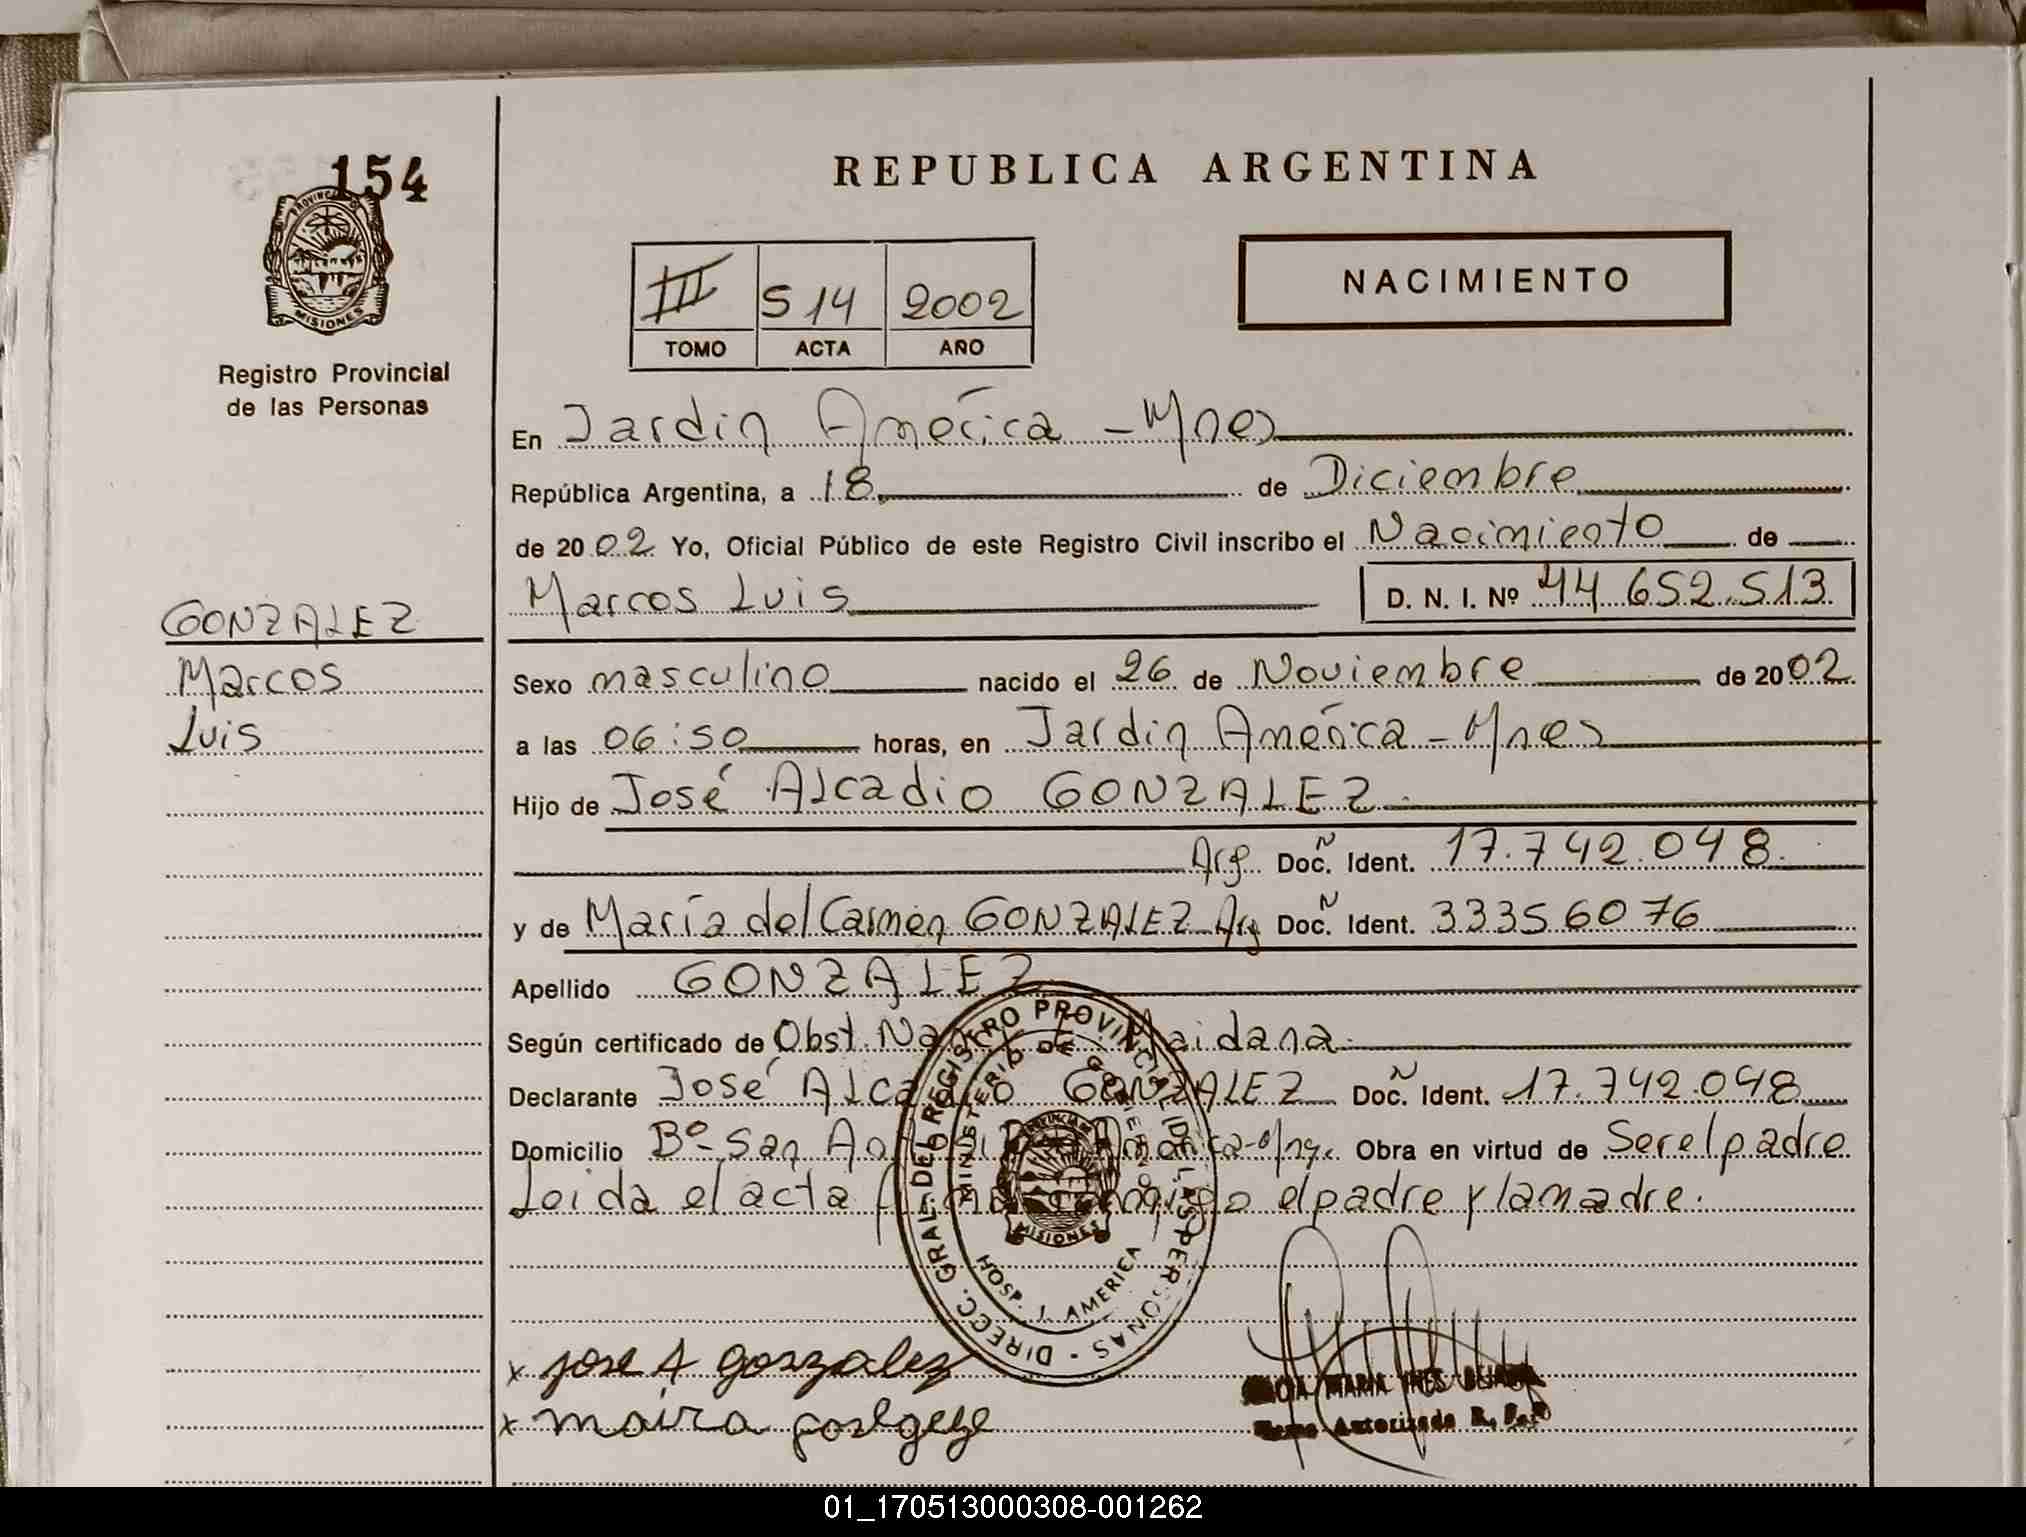 154
PROVINCIA D
MISIONES
Registro Provincial
de las Personas
GONZALEZ
Marcos
Luis
REPUBLICA ARGENTINA
III S14 2002
TOMO ACTA AÑO
NACIMIENTO
En Jardin América - Mnes
República Argentina, a 18 de Diciembre
de 2002 Yo, Oficial Público de este Registro Civil inscribo el Nacimiento de
Marcos Luis D. N. I. Nº 44 652.513
Sexo masculino nacido el 26 de Noviembre de 2002
a las 06:50 horas, en Jardin América - Mnes
Hijo de José Alcadio GONZALEZ
Arg Doc. Ident. 17.742.048
y de María del Carmen GONZALEZ Arg Doc. Ident. 33356076
Apellido GONZALEZ
Según certificado de Obst. Maidana
Declarante José Alcadio GONZALEZ Doc. Ident. 17.742.048
Domicilio Bº San Obra en virtud de Ser el padre
Leida el acta conmigo el padre y la madre.
DIRECC. GRAL. DEL REGISTRO PROVINCIAL DE LAS PERSONAS
MINISTERIO DE GOBIERNO
MISIONES
HOSP. J. AMERICA
x jose A gonzalez
x maira
MARIA INES
Autorizada
01_170513000308-001262